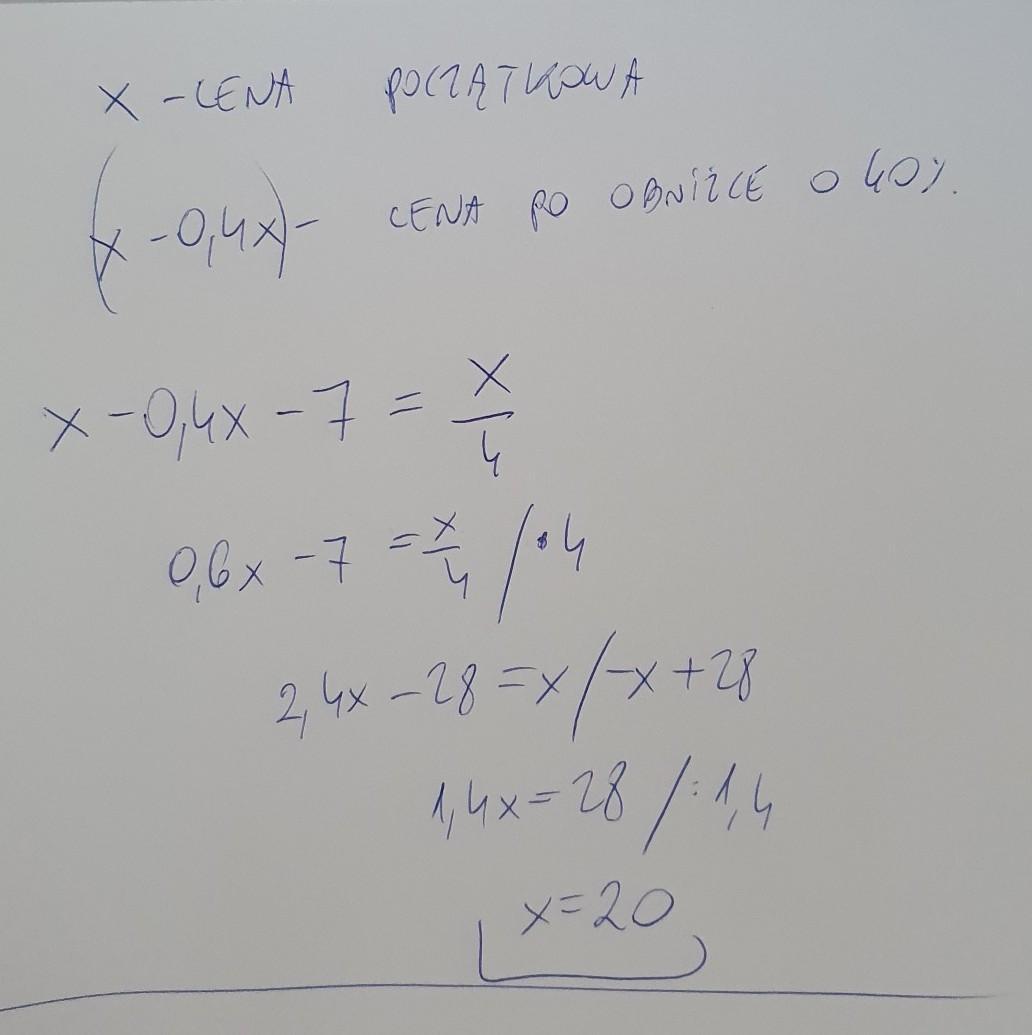 x - CENA POCZĄTKOWA
(x - 0,4x) - CENA PO OBNIŻCE O 40%.
x - 0,4x - 7 = x/4
0,6x - 7 = x/4 /·4
2,4x - 28 = x /-x + 28
1,4x = 28 /: 1,4
x = 20